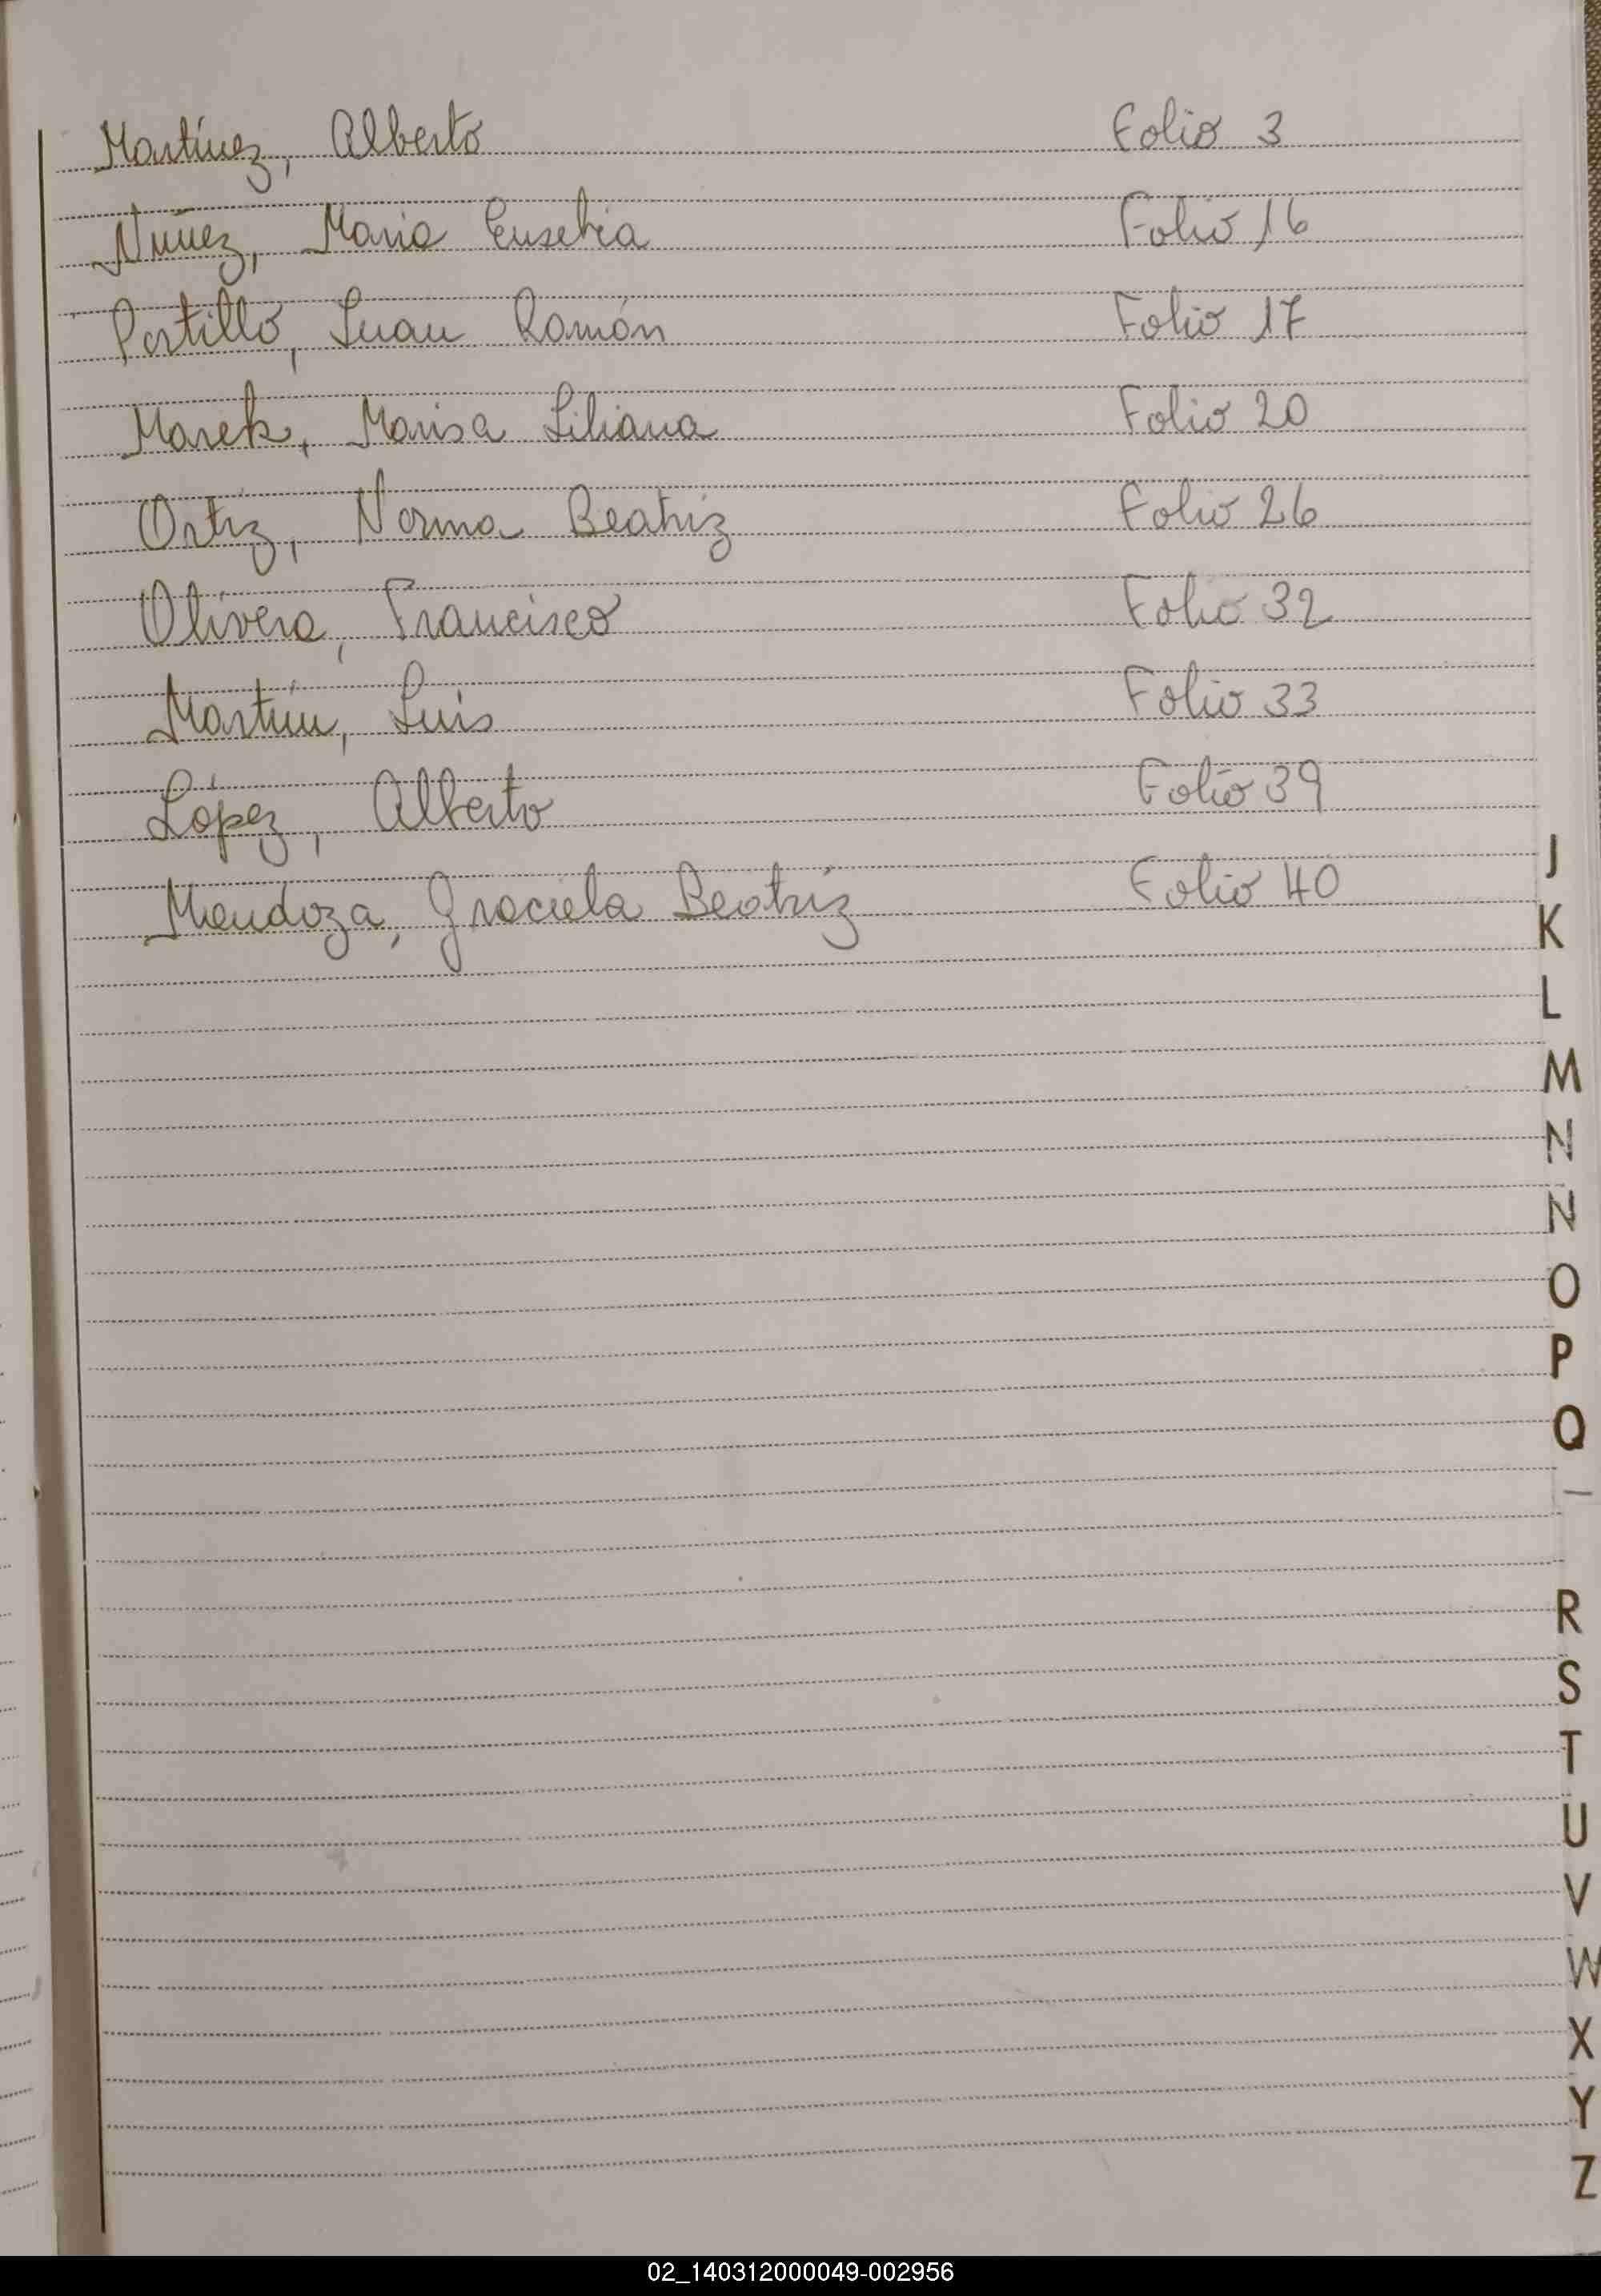 Martínez, Alberto Folio 3
Núñez, Maria Eusebia Folio 16
Portillo, Juan Ramón Folio 17
Marek, Marisa Liliana Folio 20
Ortiz, Norma Beatriz Folio 26
Olivera, Francisco Folio 32
Martín, Luis Folio 33
López, Alberto Folio 39
Mendoza, Graciela Beatriz Folio 40
J
K
L
M
N
N
O
P
Q
R
S
T
U
V
W
X
Y
Z
02_140312000049-002956